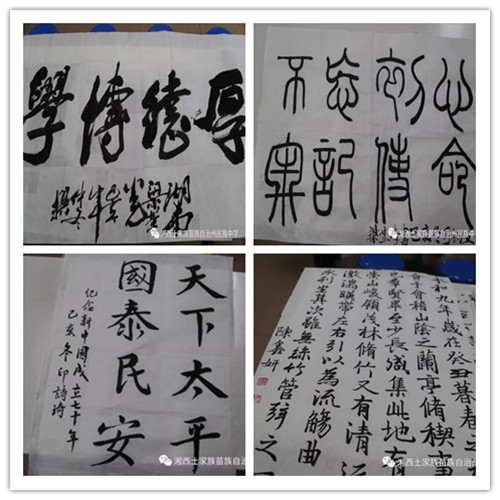 厚德博學
湘西土家族苗族自治州民族中学
不忘初心
牢記使命
湘西土家族苗族自治州民族中学
天下太平
國泰民安
紀念新中國成立七十年
己亥冬印詩琦
湘西土家族苗族自治
九年歲在癸丑暮春之
會于會稽山陰之蘭亭脩稧事
也羣賢畢至少長咸集此地有
崇山峻領茂林脩竹又有清
激湍暎帶左右引以為流觴曲
水列坐其次雖無絲竹管弦之
陳鑫妍
湘西土家族苗族自治